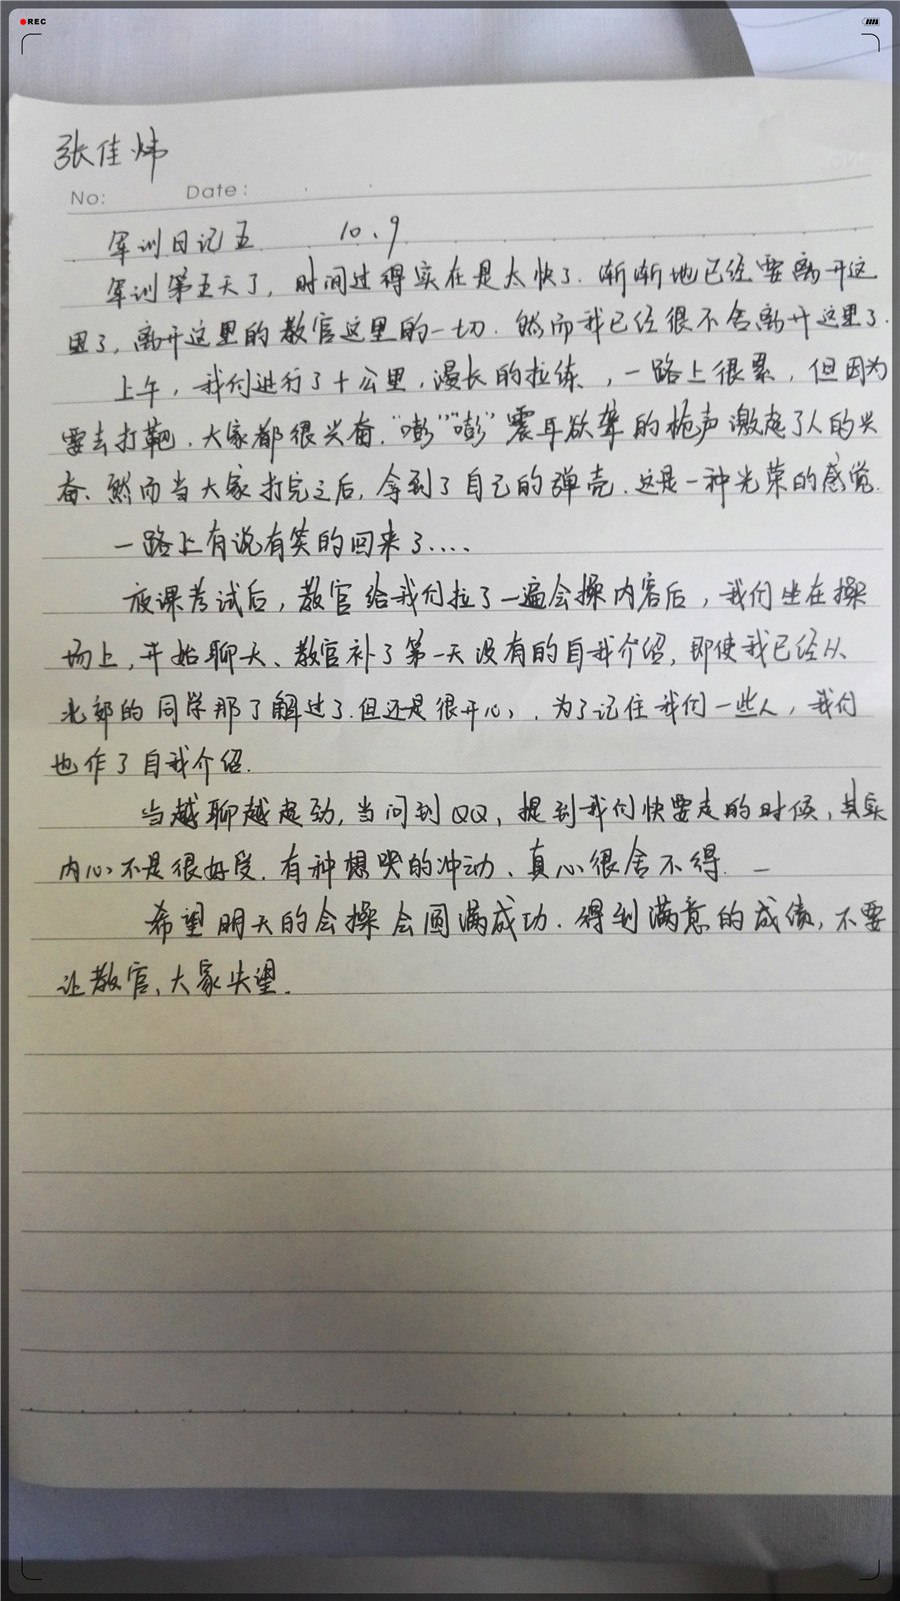 REC
张佳炜
No: Date:
军训日记五 10.9
军训第五天了，时间过得实在是太快了.渐渐地已经要离开这
里了，离开这里的教官这里的一切.然而我已经很不舍离开这里了.
上午，我们进行了十公里，漫长的拉练，一路上很累，但因为
要去打靶.大家都很兴奋."嘭""嘭"震耳欲聋的枪声激起了人的兴
奋、然而当大家打完之后，拿到了自己的弹壳.这是一种光荣的感觉.
一路上有说有笑的回来了....
夜课考试后，教官给我们拉了一遍会操内容后，我们坐在操
场上，开始聊天、教官补了第一天没有的自我介绍，即使我已经从
北郊的同学那了解过了.但还是很开心，.为了记住我们一些人，我们
也作了自我介绍.
当越聊越起劲，当问到QQ，提到我们快要走的时候，其实
内心不是很好受.有种想哭的冲动、真心很舍不得.
希望明天的会操会圆满成功.得到满意的成绩，不要
让教官、大家失望.